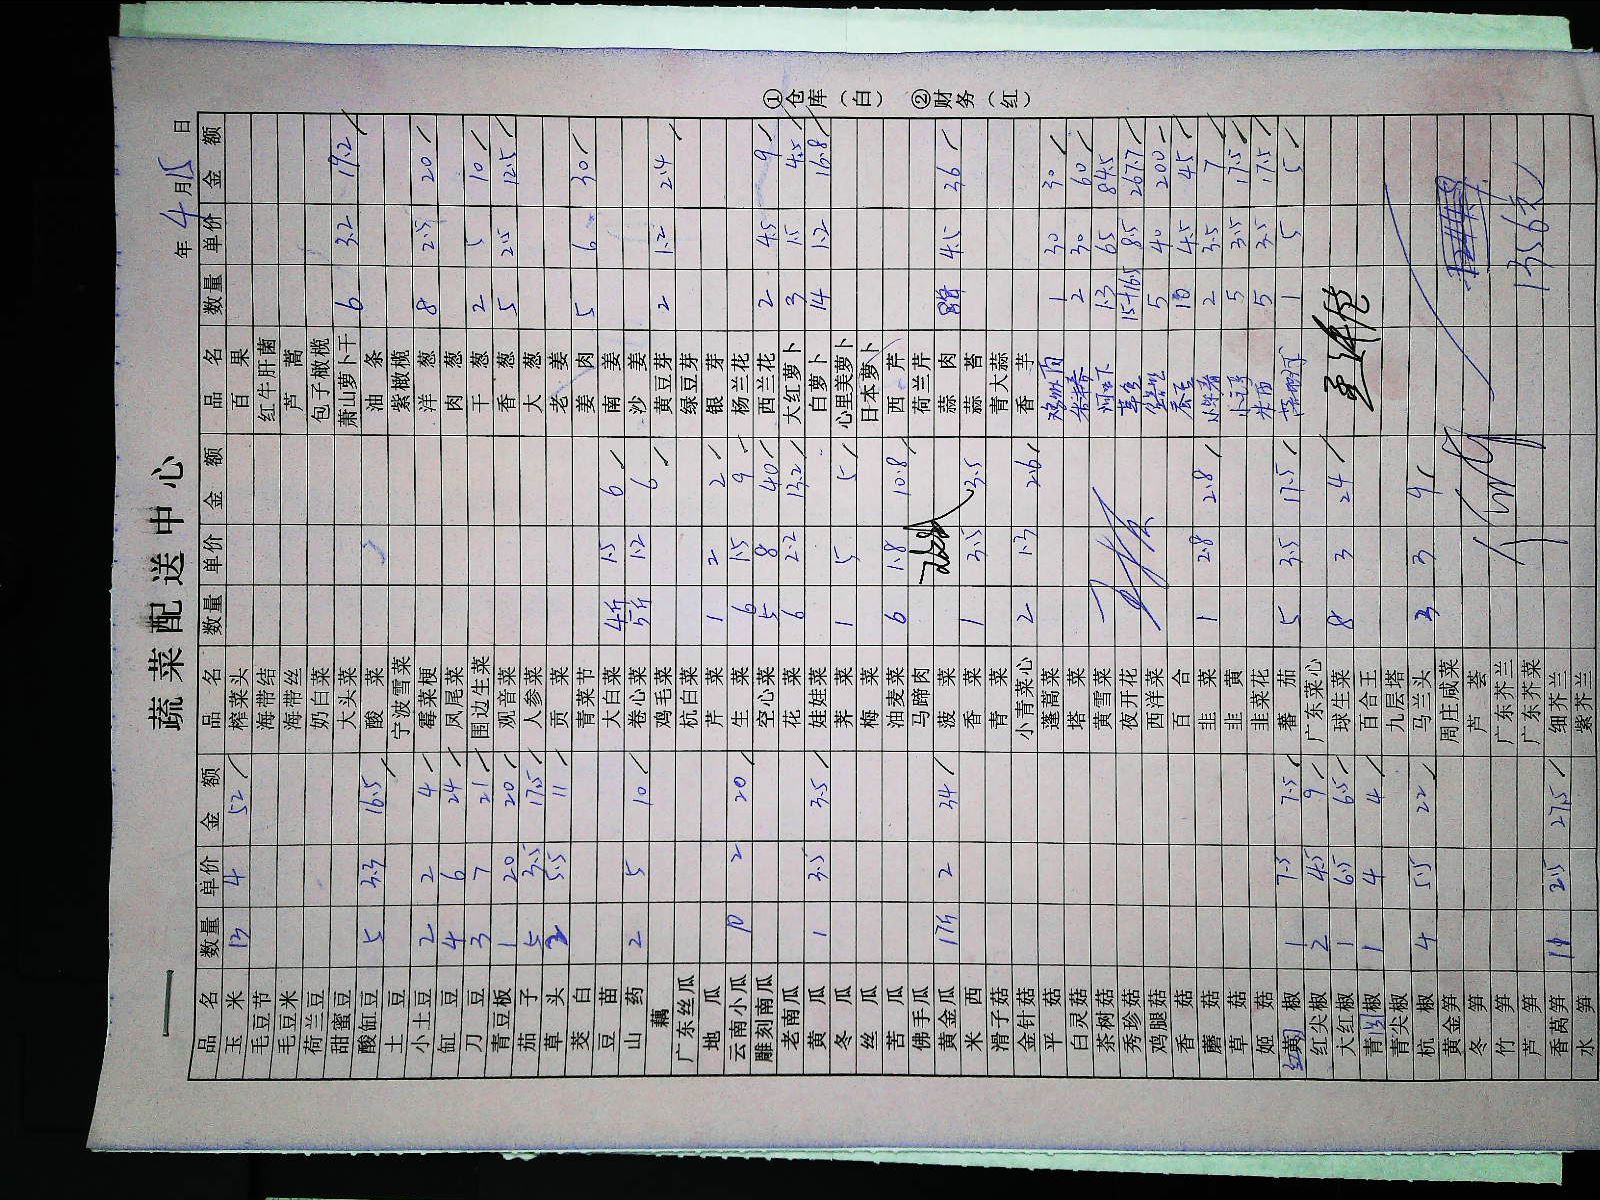 蔬菜配送中心
年 4 月 15 日
品名 数量 单价 金额 品名 数量 单价 金额 品名 数量 单价 金额
玉米 13 4 52 榨菜头 百果
毛豆节 海带结 红牛肝菌
毛豆米 海带丝 芦蒿
荷兰豆 奶白菜 包子橄榄
甜蜜豆 大头菜 萧山萝卜干 6 3.2 19.2
酸缸豆 5 3.3 16.5 酸菜 油条
土豆 宁波雪菜 紫橄榄
小土豆 2 2 4 霉菜梗 洋葱 8 2.5 20
缸豆 4 6 24 凤尾菜 肉葱
刀豆 3 7 21 围边生菜 干葱 2 5 10
青豆板 1 20 20 观音菜 香葱 5 2.5 12.5
茄子 5 3.5 17.5 人参菜 大葱
草头 2 5.5 11 贡菜 老姜
茭白 青菜节 姜肉 5 6 30
豆苗 大白菜 4斤 1.5 6 南姜
山药 2 5 10 卷心菜 5斤 1.2 6 沙姜
藕 鸡毛菜 黄豆芽 2 1.2 2.4
广东丝瓜 杭白菜 绿豆芽
地瓜 芹菜 1 2 2 银芽
云南小瓜 10 2 20 生菜 6 1.5 9 杨兰花
雕刻南瓜 空心菜 5 8 40 西兰花 2 4.5 9
老南瓜 花菜 6 2.2 13.2 大红萝卜 3 1.5 4.5
黄瓜 1 3.5 3.5 娃娃菜 白萝卜 14 1.2 16.8
冬瓜 荠菜 1 5 5 心里美萝卜
丝瓜 梅菜 日本萝卜
苦瓜 油麦菜 6 1.8 10.8 西芹
佛手瓜 马蹄肉 荷兰芹
黄金瓜 17斤 2 34 菠菜 蒜肉 4.5 36
米西 香菜 1 3.5 3.5 蒜苔
滑子菇 青菜 青大蒜
金针菇 小青菜心 2 1.3 2.6 香芋
平菇 蓬蒿菜 1 30 30
白灵菇 塔菜 2 30 60
茶树菇 黄雪菜 1.3 65 84.5
秀珍菇 夜开花 草鱼 15+16.5 8.5 267.7
鸡腿菇 西洋菜 5 40 200
香菇 百合 10 4.5 45
蘑菇 韭菜 1 2.8 2.8 2 3.5 7
草菇 韭黄 5 3.5 17.5
姬菇 韭菜花 米西 5 3.5 17.5
红圆椒 1 7.5 7.5 蕃茄 5 3.5 17.5 1 5 5
红尖椒 2 4.5 9 广东菜心
大红椒 1 6.5 6.5 球生菜 8 3 24
青圆椒 1 4 4 百合王
青尖椒 九层塔
杭椒 4 5.5 22 马兰头 3 3 9
黄金笋 周庄咸菜
冬笋 芦荟
竹笋 广东芥兰
芦笋 广东芥菜 1356元
香莴笋 11 2.5 27.5 细芥兰
水笋 紫芥兰
①仓库（白） ②财务（红）